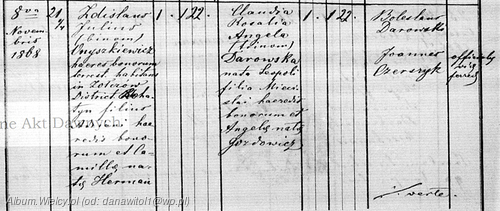 8va
Novem-
bris
1868
21
/4
Zdislaus
Julius
(binom)
Onyszkiewicz
haeres bonorum
terrest. habitans
in Zoterów
District Roha-
tyn filius
haere-
dis bono-
rum et Ca-
milla na-
ta Herman
1 . 1 22 .
Claudia
Rosalia
Angela
(trinom)
Darowska
nata Leopoli
filia Miecis-
lai haeredis
bonorum et
Angela nata
Jordowicz
1 . 1 22 .
Boleslau
Darowski
Joannes
Czerszyk
verte.
ne Akt Dawnych
Album.Wielcy.pl (od: danawitol1@wp.pl)